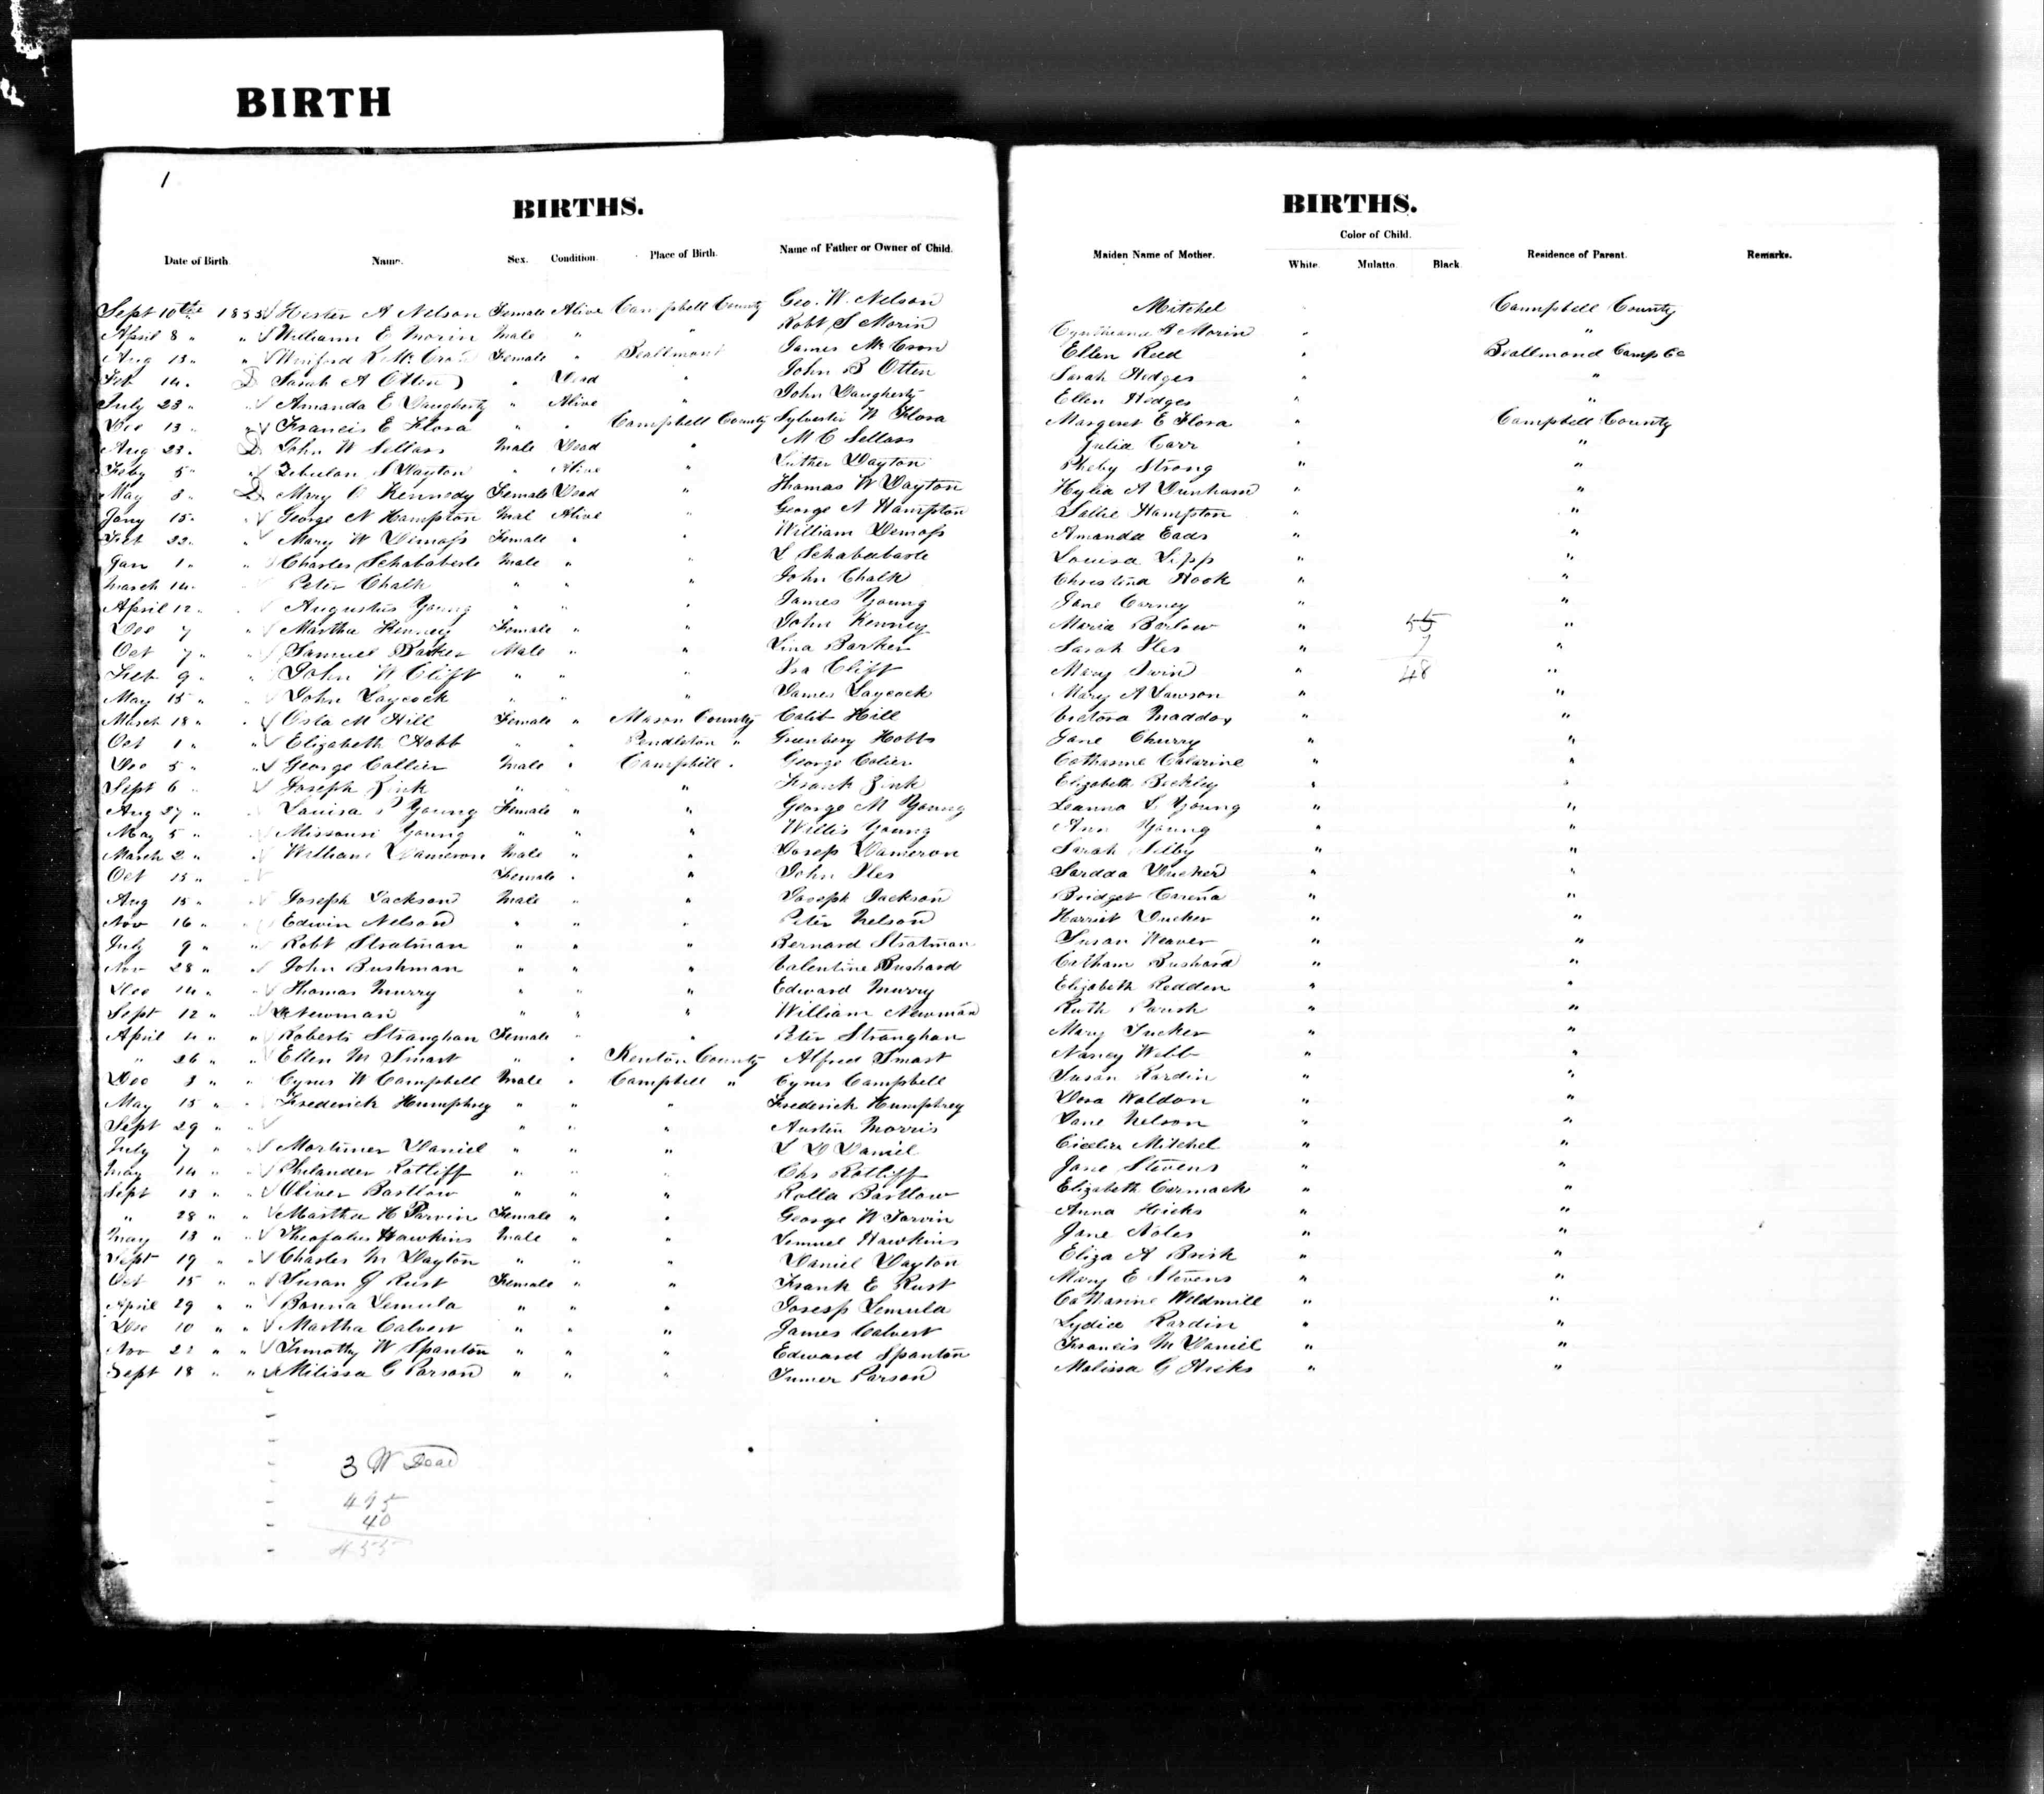 BIRTH
1
BIRTHS.
BIRTHS.
Color of Child.
Date of Birth. Name. Sex. Condition. Place of Birth. Name of Father or Owner of Child. Maiden Name of Mother. White. Mulatto. Black. Residence of Parent. Remarks.
Sept 10th 1855 Hester A Nelson Female Alive Campbell County Geo. W. Nelson Mitchel Campbell County
April 8 " " William E Morin Male " " Robt S Morin Morin " "
Aug 13 " " R Mc Female " James McCron Ellen Reed " Beallmond Camp Co
14 " D Sarah A Otten " Dead " John B Otten Sarah Hedges " "
July 23 " " Amanda E Daugherty " Alive " John Daugherty Ellen Hedges " "
Dec 13 " " Francis E Flora " " Campbell County Sylvester W Flora Margaret E Flora " Campbell County
Aug 23 " D John W Sellars Male Dead " M C Sellars Julia Carr " "
Feby 5 " " Zebulan S Dayton " Alive " Luther Dayton Pheby Strong " "
May 8 " D Mary Kennedy Female Dead " Thomas W Dayton Hylia A Dunham " "
Jany 15 " " George N Hampton Mal Alive " George N Hampton Sallie Hampton " "
22 " " Mary W Demoss Female " " William Demoss Amanda Eads " "
Jan 1 " " Charles Schababerle Male " " L Schababarle Louisa Lipp " "
March 14 " Peter Chalk " " " John Chalk Christina Hook " "
April 12 " Augustus Young " " " James Young Jane Carney " "
Dec 7 " Martha Kenney Female " " John Kenney Maria Barlow " 55 "
Oct 7 " Samuel Barker Male " " Lina Barker Sarah Iles " 7 "
9 " " John W Clift " " " Ira Clift Mary " 48 "
May 15 " " John Laycock " " " James Laycock Mary A Lawson " "
March 18 " " M Hill Female " Mason County Calib Hill Victora Maddox " "
Oct 1 " " Elizabeth Hobb " " Pendleton " Greenbery Hobbs Jane Churry " "
Dec 5 " " George Collier Male " Campbell " George Colier Catharine " "
Sept 6 " Joseph Zink " " " Frank Zink Elizabeth " "
Aug 27 " Louisa Young Female " " George M Young Leanna L Young " "
May 5 " Missouri Young " " " Willis Young Ann Young " "
March 2 " William Dameron Male " " Josep Dameron Sarah Silby " "
Oct 15 " Female " " John Iles "  "
Aug 15 " Joseph Jackson Male " " Joseph Jackson Bridget " "
Nov 16 " Edwin Nelson " " " Peter Nelson Harriet " "
July 9 " " Robt Stratman " " " Bernard Stratman Susan Weaver " "
Nov 28 " " John Bushman " " " Valentine Bushard Bushard " "
Dec 14 " " Thomas Murry " " " Edward Murry Elizabeth Redden " "
Sept 12 " Newman " " " William Newman Ruth Parish " "
April 4 " " Roberts Stranghan Female " " Peter Stranghan Mary Tucker " "
" 26 " " Ellen M Smart " " Kenton County Alfred Smart Nancy Webb " "
Dec 3 " " Cyrus W Campbell Male " Campbell " Cyrus Campbell Susan Rardin " "
May 15 " " Frederick Humphrey " " " Frederick Humphrey Waldon " "
Sept 29 " " " " Austin Morris Jane Nelson " "
July 7 " " Mortimer Daniel " " " L D Daniel Mitchel " "
May 14 " " Philander Ratliff " " " Chs Ratliff Jane Stevens " "
Sept 13 " " Oliver Bartlow " " " Rolla Bartlow Elizabeth Carmack " "
" 28 " " Martha H Female " " George W Anna Hicks " "
May 13 " " Hawkins Male " " Lemuel Hawkins Jane Noles " "
Sept 19 " " Charles M Dayton " " " Daniel Dayton Eliza A " "
Oct 15 " " Susan G Rust Female " " Frank E Rust Mary E Stevens " "
April 29 " " Lemula " " " Josesp Lemula Catharine Weldmill " "
Dec 10 " " Martha Calvert " " " James Calvert Lydia Rardin " "
Nov " " Timothy W Spanton " " " Edward Spanton Francis McDaniel " "
Sept 18 " " Milissa G Parson " " " Parson Malissa G Hicks " "
3 W Dead
495
40
455